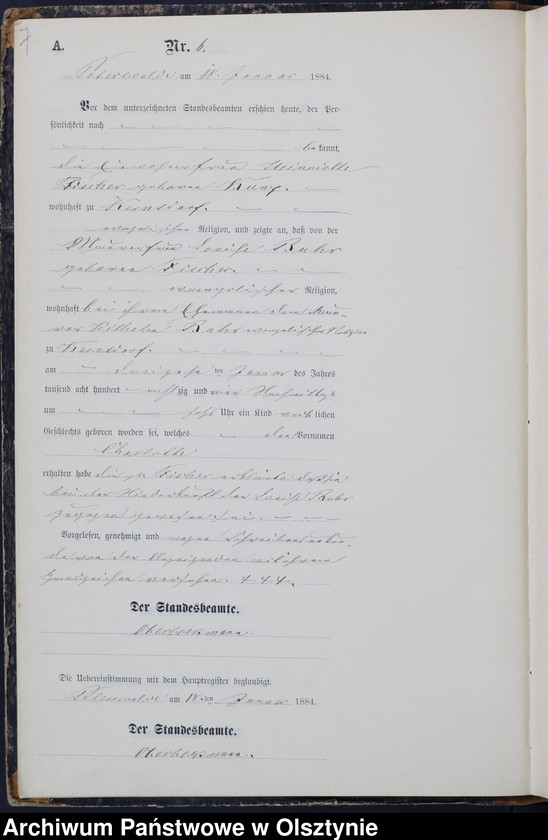 7
A. Nr. 6.
am 18. Januar 1884.
Vor dem unterzeichneten Standesbeamten erschien heute, der Per-
sönlichkeit nach
be kannt,
die
Fischer geborene
wohnhaft zu
evangelischer Religion, und zeigte an, daß von der
Maurerfrau Louise Ruhr
geborene Fischer
evangelischer Religion,
wohnhaft bei ihrem Ehemanne dem Mau-
rer Wilhelm Ruhr evangelischer Religion
zu
am dreizehn ten Januar des Jahres
tausend acht hundert acht zig und vier Nachmittags
um Uhr ein Kind weib lichen
Geschlechts geboren worden sei, welches den Vornamen
Charlotte
erhalten habe die Fischer erklärte daß sie
bei der Niederkunft der Louise Ruhr
zugegen gewesen sei.
Vorgelesen, genehmigt und wegen Schreibensunkun-
de von der Anzeigenden mit ihrem
Handzeichen versehen. +++.
Der Standesbeamte.
Die Uebereinstimmung mit dem Hauptregister beglaubigt.
am 18 ten Januar 1884.
Der Standesbeamte.
Archiwum Państwowe w Olsztynie